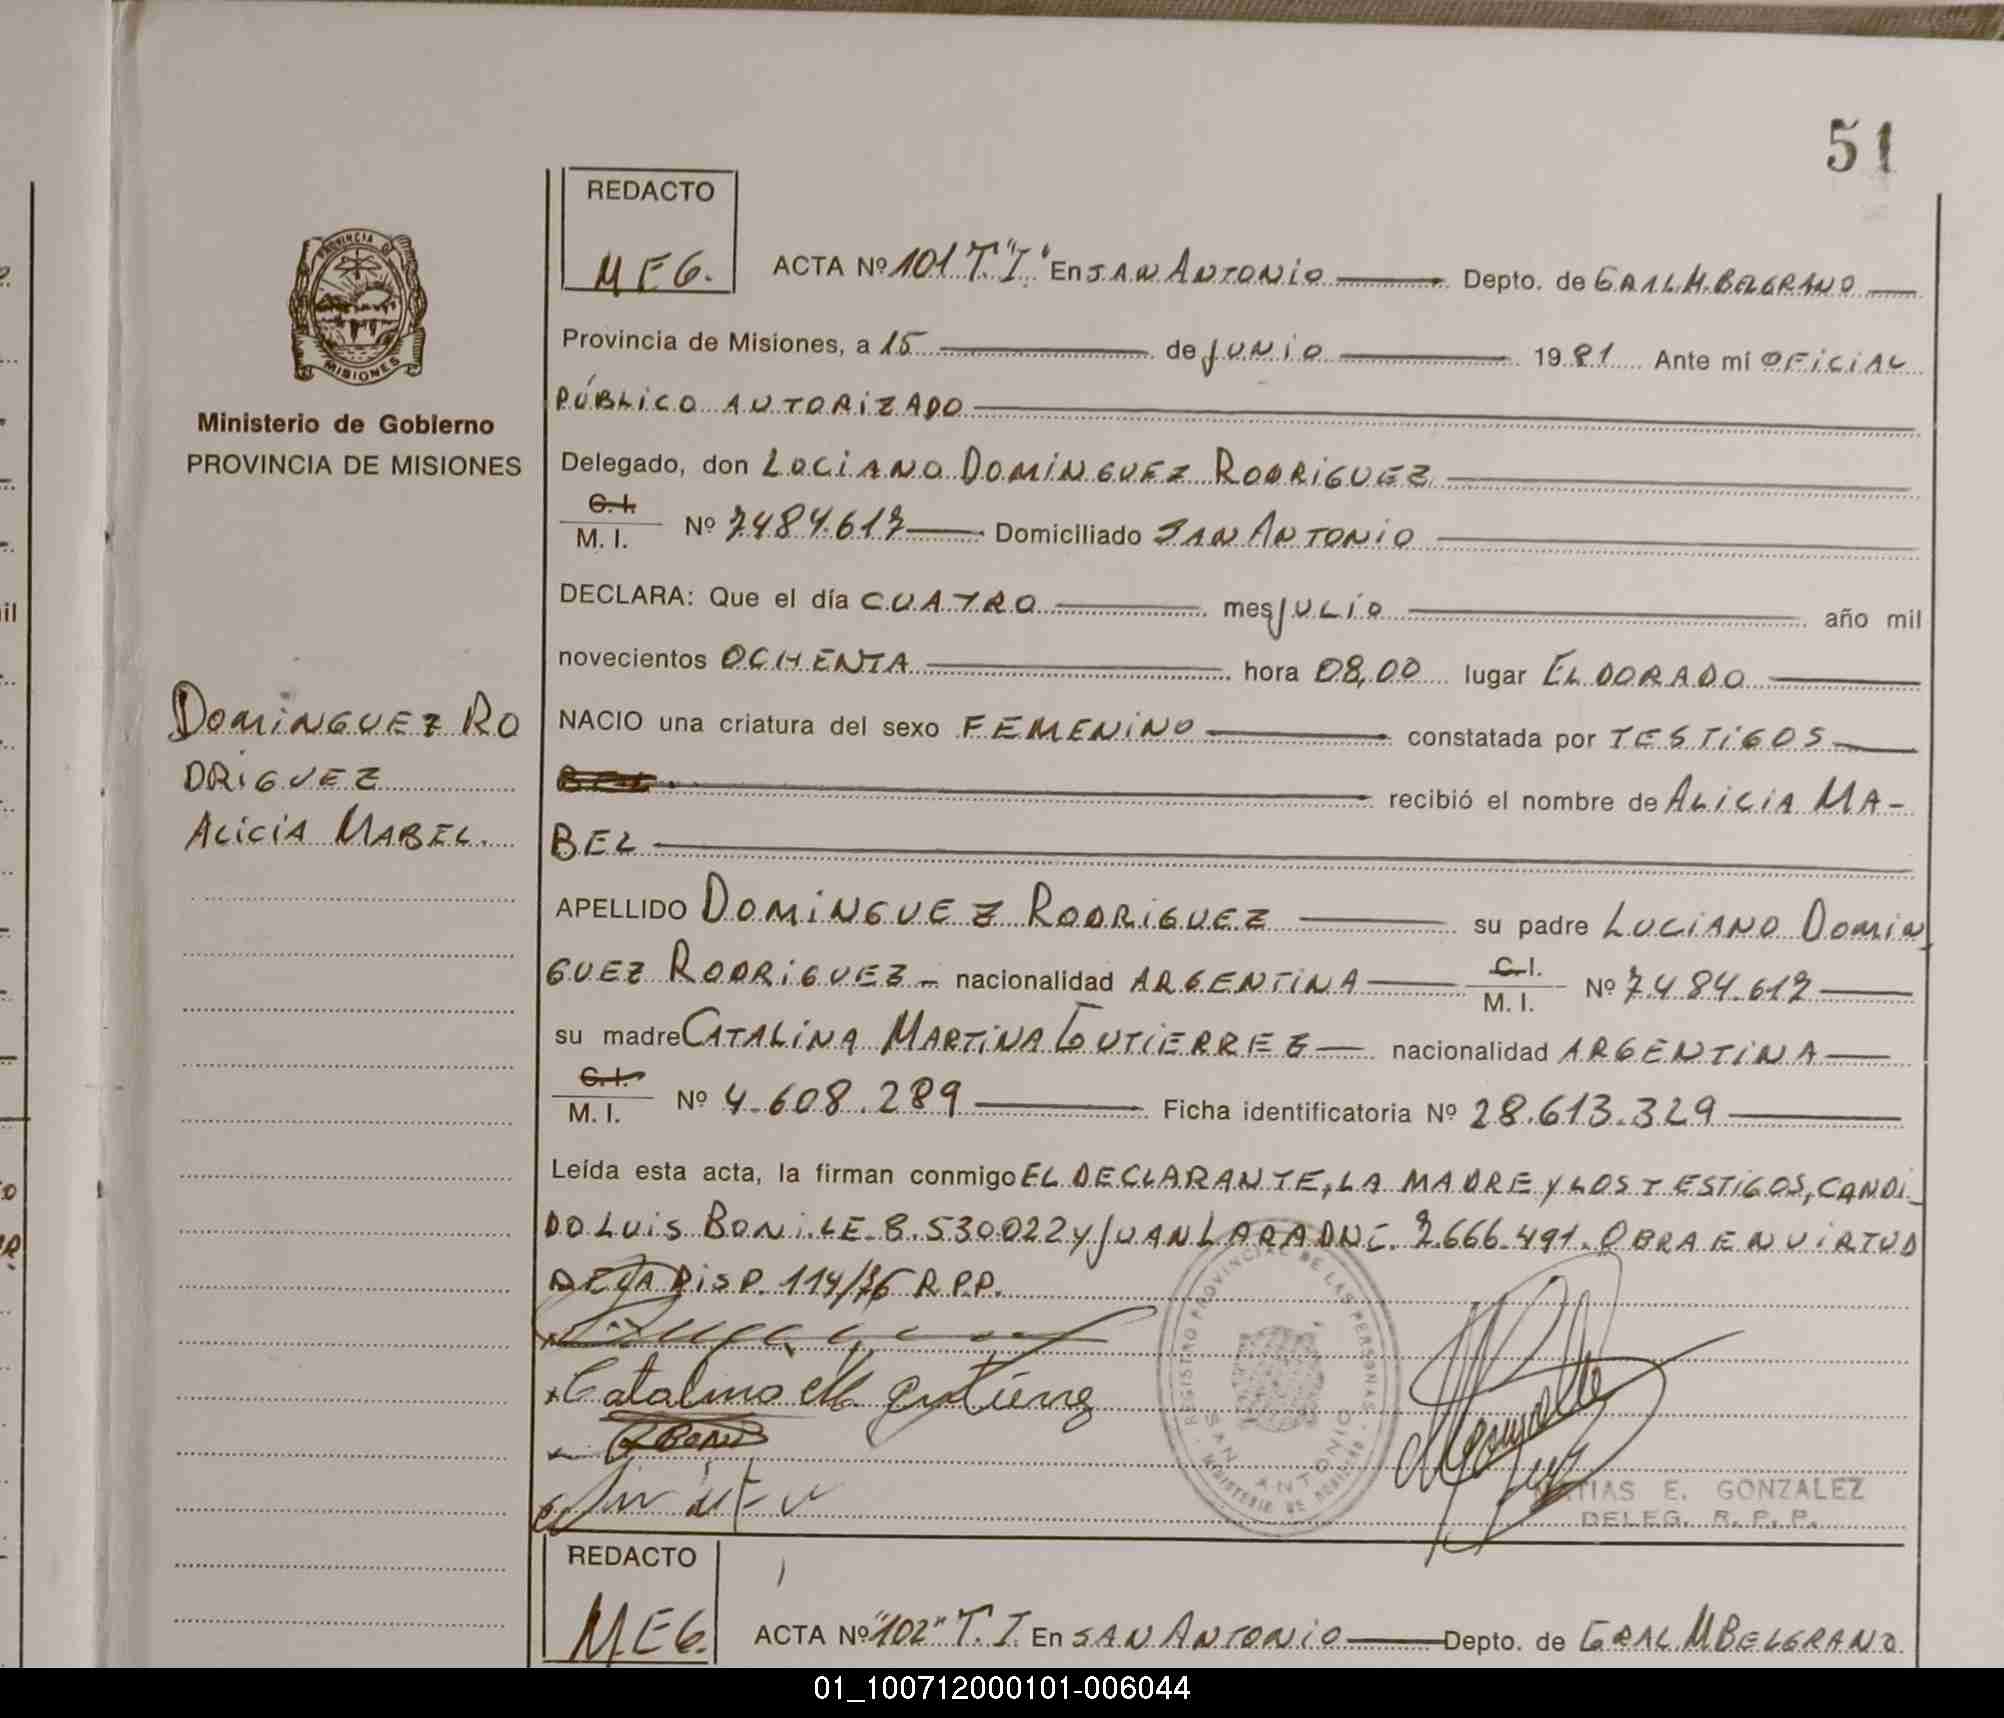 51
REDACTO
MEG.
ACTA Nº 101 T."I" En SAN ANTONIO Depto. de GRAL M. BELGRANO
PROVINCIA DE
MISIONES
Provincia de Misiones, a 15 de JUNIO 1981 Ante mí OFICIAL
PÚBLICO AUTORIZADO
Ministerio de Gobierno
PROVINCIA DE MISIONES
Delegado, don LUCIANO DOMINGUEZ RODRIGUEZ
C. I.
M. I. Nº 7484.617 Domiciliado SAN ANTONIO
DECLARA: Que el día CUATRO mes JULIO año mil
novecientos OCHENTA hora 08,00 lugar ELDORADO
DOMINGUEZ RO
DRIGUEZ
ALICIA MABEL.
NACIO una criatura del sexo FEMENINO constatada por TESTIGOS
recibió el nombre de ALICIA MA-
BEL
APELLIDO DOMINGUEZ RODRIGUEZ su padre LUCIANO DOMIN
GUEZ RODRIGUEZ nacionalidad ARGENTINA C. I. M. I. Nº 7.484.617
su madre CATALINA MARTINA GUTIERREZ nacionalidad ARGENTINA
C. I.
M. I. Nº 4.608.289 Ficha identificatoria Nº 28.613.329
Leída esta acta, la firman conmigo EL DECLARANTE, LA MADRE Y LOS TESTIGOS, CANDI-
DO LUIS BONI. LE. 8.530022 Y JUAN LARA DNI. 7.666.491. OBRA EN VIRTUD
DE LA DISP. 114/76 R.P.P.
Catalina M. Gutierrez
BONI
REGISTRO PROVINCIAL DE LAS PERSONAS
SAN ANTONIO
MINISTERIO DE GOBIERNO
MATIAS E. GONZALEZ
DELEG. R. P. P.
REDACTO
MEG.
ACTA Nº "102" T. I. En SAN ANTONIO Depto. de GRAL M BELGRANO
01_100712000101-006044